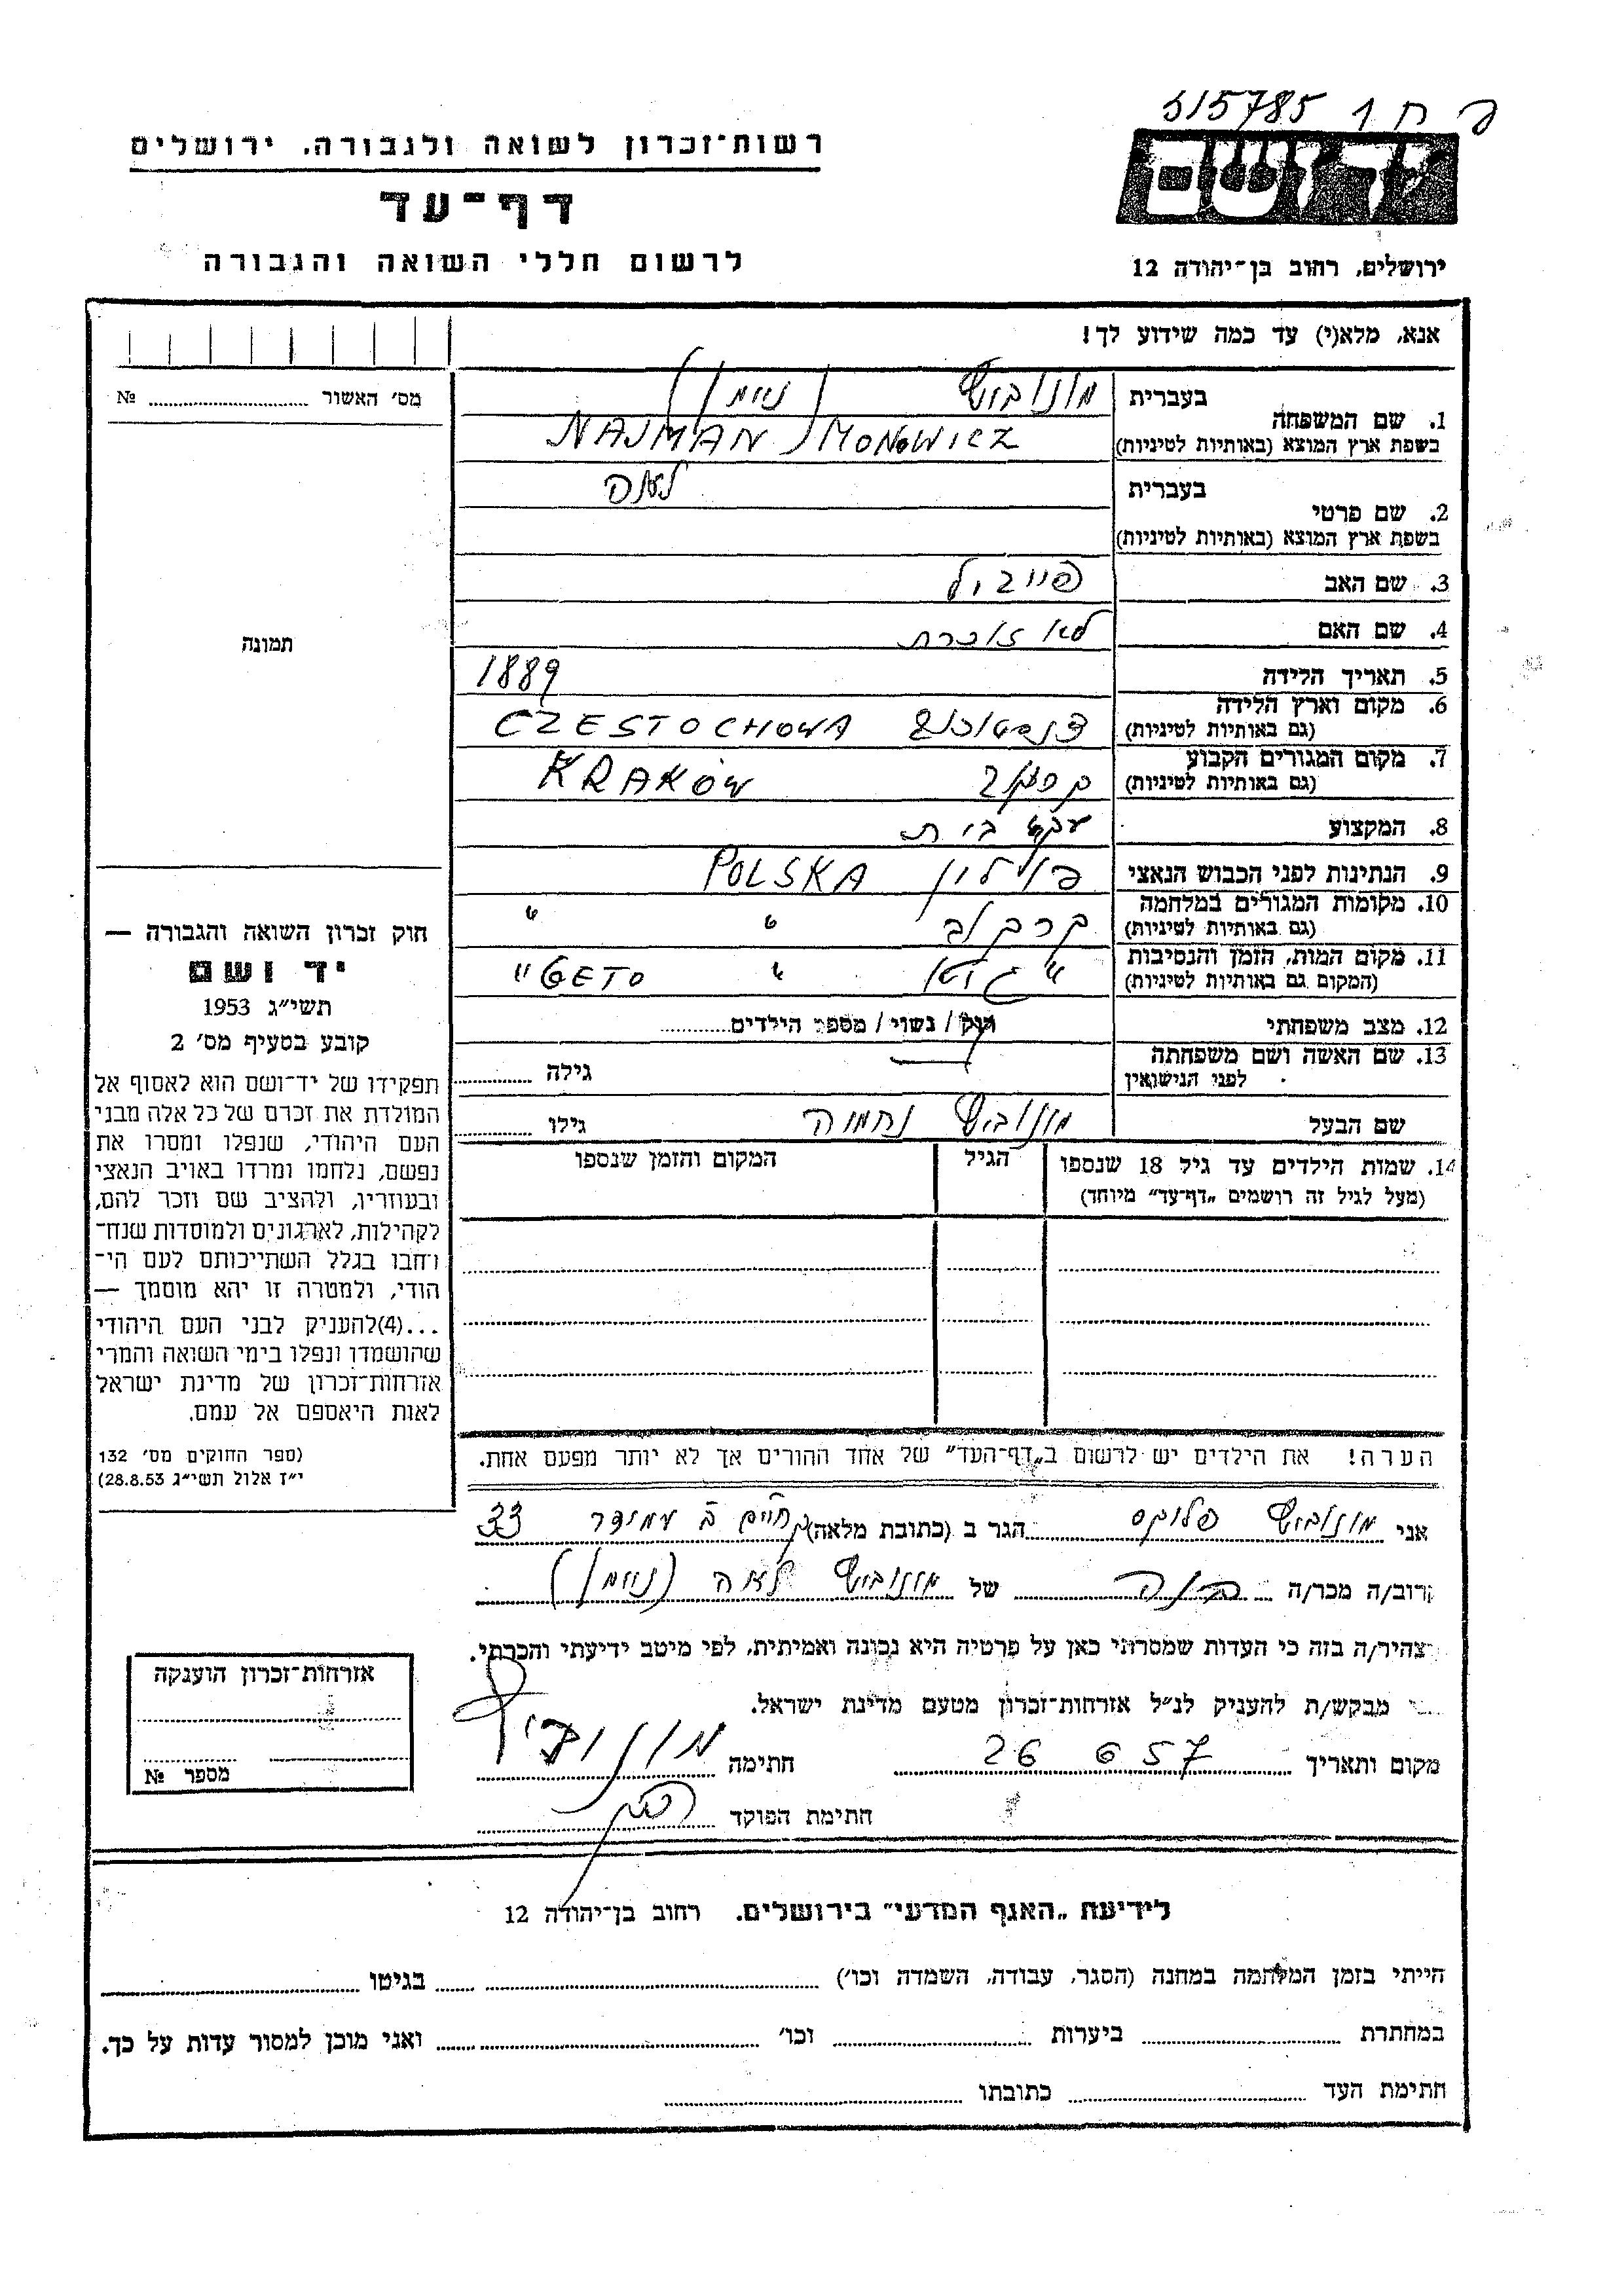 515785 פ ח 1
יד ושם
ירושלים, רחוב בן־יהודה 12
רשות־זכרון לשואה ולגבורה, ירושלים
דף־עד
לרשום חללי השואה והגבורה
אנא, מלא(י) עד כמה שידוע לך!
מס׳ האשור № 
1. שם המשפחה בעברית מונוביץ (ניימן)
בשפת ארץ המוצא (באותיות לטיניות) NAJMAN MONOWICZ
2. שם פרטי בעברית לאה
בשפת ארץ המוצא (באותיות לטיניות)
3. שם האב פייבול
4. שם האם לא זוכרת
5. תאריך הלידה 1889
6. מקום וארץ הלידה (גם באותיות לטיניות) CZESTOCHOWA
7. מקום המגורים הקבוע (גם באותיות לטיניות) קרקוב KRAKÓW
8. המקצוע עקרת בית
9. הנתינות לפני הכבוש הנאצי פולין POLSKA
10. מקומות המגורים במלחמה (גם באותיות לטיניות) קרקוב " "
11. מקום המות, הזמן והנסיבות (המקום גם באותיות לטיניות) "גטו" " "GETO"
12. מצב משפחתי רוק / נשוי / מספר הילדים
13. שם האשה ושם משפחתה לפני הנישואין גילה
שם הבעל מונוביץ נחמיה גילו
14. שמות הילדים עד גיל 18 שנספו (מעל לגיל זה רושמים „דף־עד״ מיוחד) הגיל המקום והזמן שנספו
הערה! את הילדים יש לרשום ב„דף־העד״ של אחד ההורים אך לא יותר מפעם אחת.
תמונה
חוק זכרון השואה והגבורה —
יד ושם
תשי״ג 1953
קובע בסעיף מס׳ 2
תפקידו של יד־ושם הוא לאסוף אל
המולדת את זכרם של כל אלה מבני
העם היהודי, שנפלו ומסרו את
נפשם, נלחמו ומרדו באויב הנאצי
ובעוזריו, ולהציב שם וזכר להם,
לקהילות, לארגונים ולמוסדות שנח־
רבו בגלל השתייכותם לעם הי־
הודי, ולמטרה זו יהא מוסמך —
...(4)להעניק לבני העם היהודי
שהושמדו ונפלו בימי השואה והמרי
אזרחות־זכרון של מדינת ישראל
לאות היאספם אל עמם.
(ספר החוקים מס׳ 132
י״ז אלול תשי״ג 28.8.53)
אני מונוביץ הגר ב (כתובת מלאה) 33
קרוב/ה מכר/ה של מונוביץ לאה (ניימן)
מצהיר/ה בזה כי העדות שמסרתי כאן על פרטיה היא נכונה ואמיתית, לפי מיטב ידיעתי והכרתי.
מבקש/ת להעניק לנ״ל אזרחות־זכרון מטעם מדינת ישראל.
מקום ותאריך 26 6 57 חתימה
חתימת הפוקד
אזרחות־זכרון הוענקה
מספר №
לידיעת „האגף המדעי״ בירושלים, רחוב בן־יהודה 12
הייתי בזמן המלחמה במחנה (הסגר, עבודה, השמדה וכו׳) בגיטו
במחתרת ביערות וכו׳ ואני מוכן למסור עדות על כך.
חתימת העד כתובתו